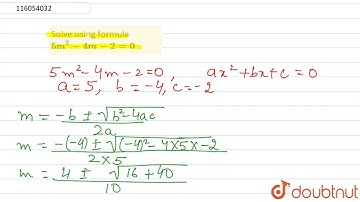 116054032
Solve using formula
5m² − 4m − 2 = 0
5m² - 4m - 2 = 0 , ax² + bx + c = 0
a = 5, b = -4, c = -2
m = -b ± √b² - 4ac / 2a
m = -(-4) ± √(-4)² - 4×5×-2 / 2×5
m = 4 ± √16 + 40 / 10
doubtnut